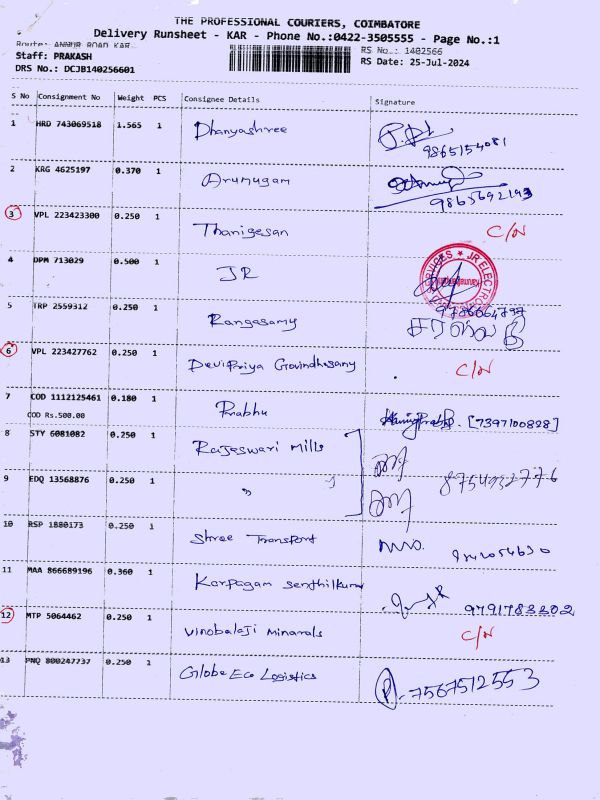 THE PROFESSIONAL COURIERS, COIMBATORE
Delivery Runsheet - KAR - Phone No.:0422-3505555 - Page No.:1
Route: ANNUR ROAD KAR
RS No.: 1402566
Staff: PRAKASH
RS Date: 25-Jul-2024
DRS No.: DCJB140256601
S No Consignment No Weight PCS Consignee Details Signature
1 HRD 743069518 1.565 1 Dhanyashree
9865154081
2 KRG 4625197 0.370 1 Arumugam
9865692193
3 VPL 223423300 0.250 1 Thanigesan C/N
4 DPM 713029 0.500 1 JR
SERVICES ★ JR ELECTRO
5 TRP 2559312 0.250 1 Rangasamy
6 VPL 223427762 0.250 1 Devipriya Govindhasamy C/N
7 COD 1112125461 0.180 1 Prabhu [7397100898]
COD Rs.500.00
8 STY 6081082 0.250 1 Rajeswari Mills
9 EDQ 13568876 0.250 1 "
10 RSP 1880173 0.250 1 Shree Transport
11 MAA 866689196 0.360 1 Karpagam Senthilkumar
9791783202
12 MTP 5064462 0.250 1 Vinobalaji Minarals C/N
13 PNQ 800247737 0.250 1 Globe Eco Logistics 7567512553